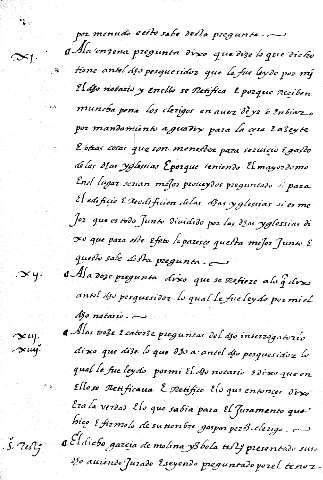 por menudo e esto sabe desta pregunta
XI. A la onzena pregunta dixo que dize lo que dicho
tiene antel dho pesquesidor que le fue leydo por mj
El dho notario y en ello se Retifica E porque Reciben
muncha pena los clerigos en aver de yr o enbiar
por mandamiento a guadix para la cera E azeyte
E otras cosas que son menester para servicio E gasto
de las dhas yglesias E porque teniendo El mayordomo
En el lugar serian mejor proveydos preguntado si para
El edificio E Reedificion de las dhas yglesias si es me
jor que este todo Junto dividido por las dhas yglesias di
xo que para este efeto le parece questa mejor Junto E
questo sabe desta pregunta
XII A la doze pregunta dixo que se Refiere a lo q dixo
antel dho pesquesidor lo qual le fue leydo por mi el
dho notario
XIII A las treze E catorze preguntas del dho interrogatorio
XIIII dixo que dize lo que dho a antel dho pesquesidor lo
qual le fue leydo por mi El dho notario E dixo que en
ello se Retificava E Retifico E lo que entonces dixo
Era la verdad E lo que sabia para El Juramento que
hizo E firmolo de su nonbre gaspar clerigo
El dicho garcia de molina testigo presentado suso
dho aviendo Jurado E seyendo preguntado por el tenor